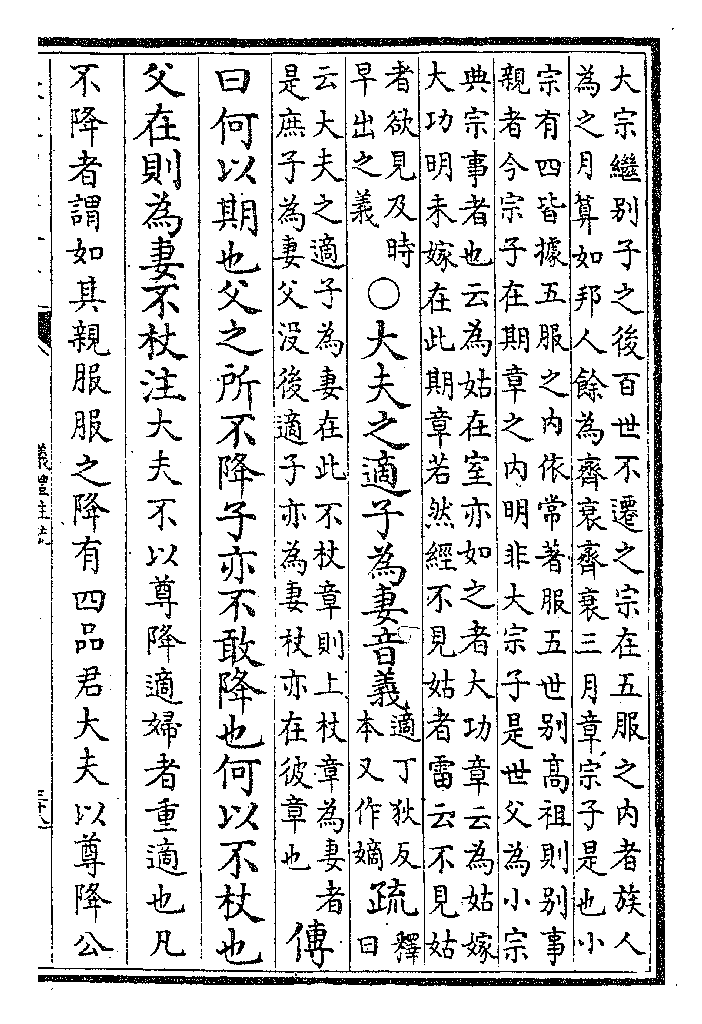 大宗繼別子之後百世不遷之宗在五服之內者族人
為之月算如邦人餘為齊衰齊衰三月章宗子是也小
宗有四皆據五服之內依常著服五世別高祖則別事
親者今宗子在期章之內明非大宗子是世父為小宗
典宗事者也云為姑在室亦如之者大功章云為姑嫁
大功明未嫁在此期章若然經不見姑者雷云不見姑
者欲見及時
早出之義
○大夫之適子為妻音義
適丁狄反
本又作嫡
疏
釋
曰
云大夫之適子為妻在此不杖章則上杖章為妻者
是庶子為妻父沒後適子亦為妻杖亦在彼章也
傳
曰何以期也父之所不降子亦不敢降也何以不杖也
父在則為妻不杖注大夫不以尊降適婦者重適也凡
不降者謂如其親服服之降有四品君大夫以尊降公
儀禮註疏